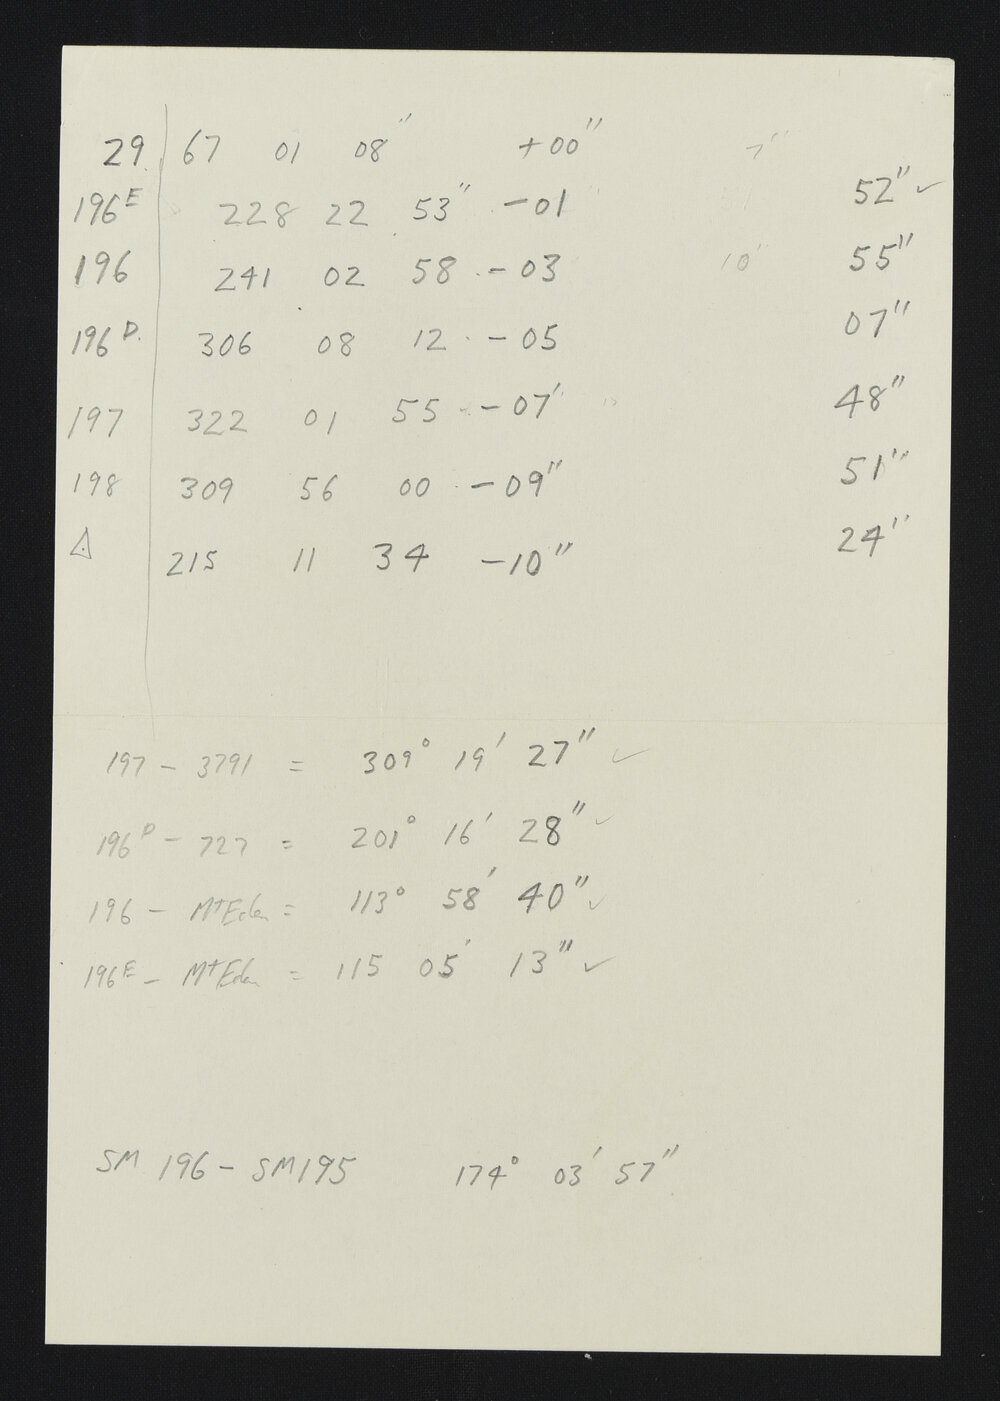 29 67 01 08" +00" 7"
196E 228 22 53" -01 52" ✓
196 241 02 58 -03 10" 55"
196D 306 08 12 -05 07"
197 322 01 55 -07' 48"
198 309 56 00 -09" 51"
△ 215 11 34 -10" 24"
197 - 3791 = 309° 19' 27" ✓
196D - 727 = 201° 16' 28" ✓
196 - Mt Eden = 113° 58' 40" ✓
196E - Mt Eden = 115 05' 13" ✓
SM 196 - SM195 174° 03' 57"